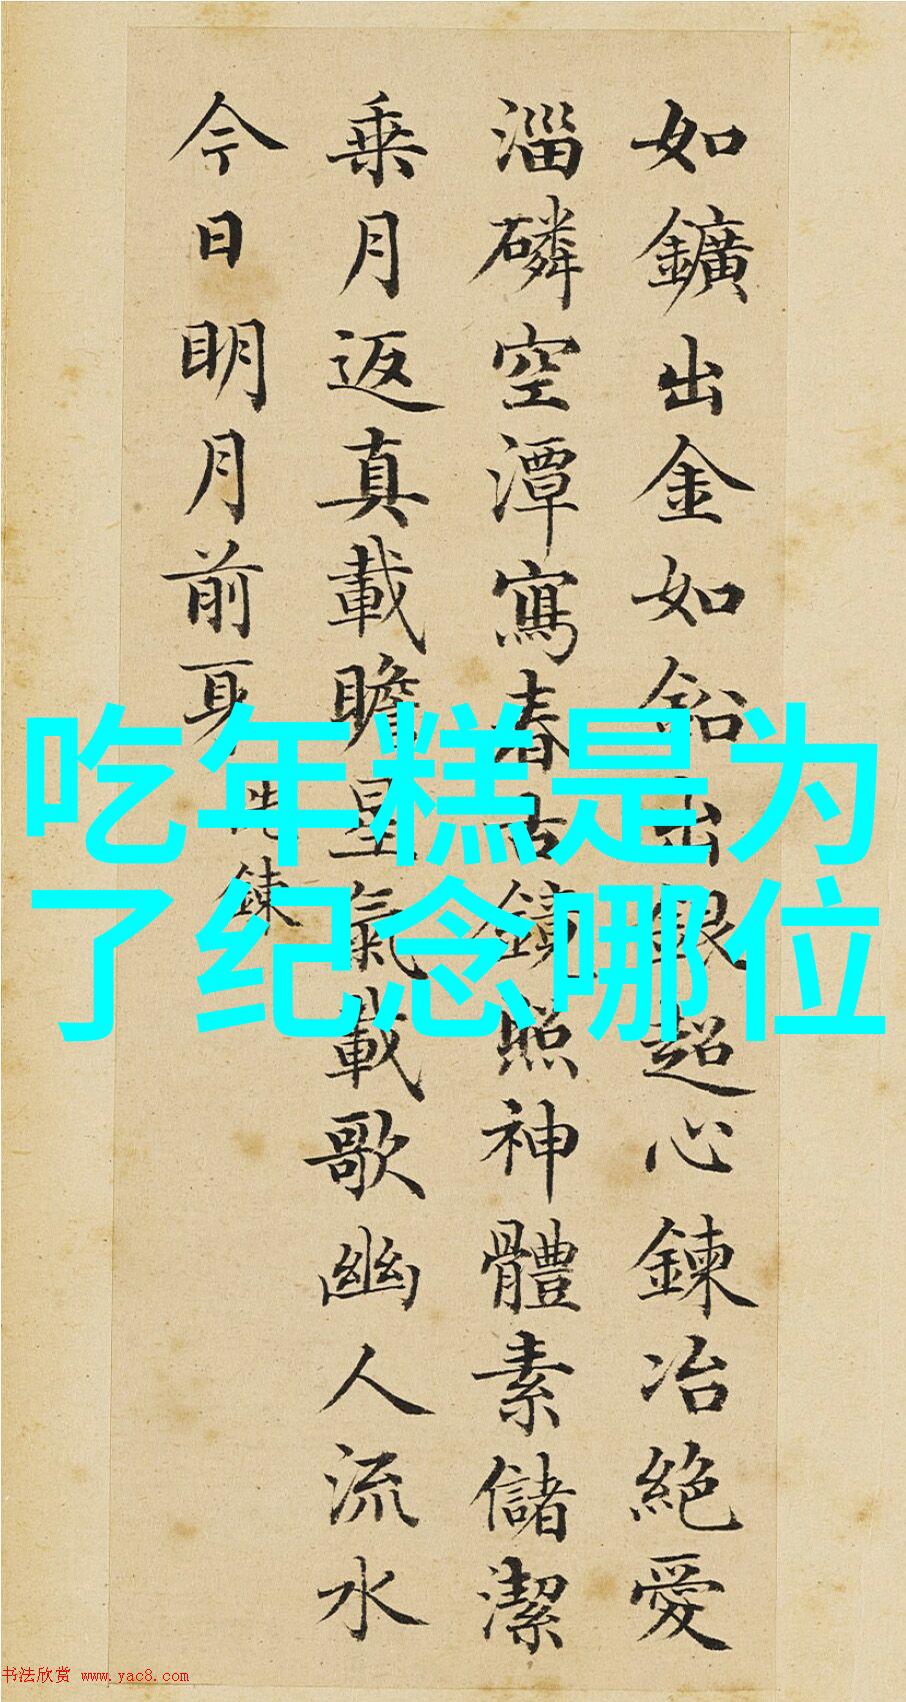 如鑛出金如鉛出銀超心鍊冶絕愛
淄磷空潭寫春古鏡照神體素儲潔
乗月返真載瞻星氣載歌幽人流水
今日明月前身
洗鍊
吃年糕是为
了纪念哪位
书法欣赏 www.yac8.com